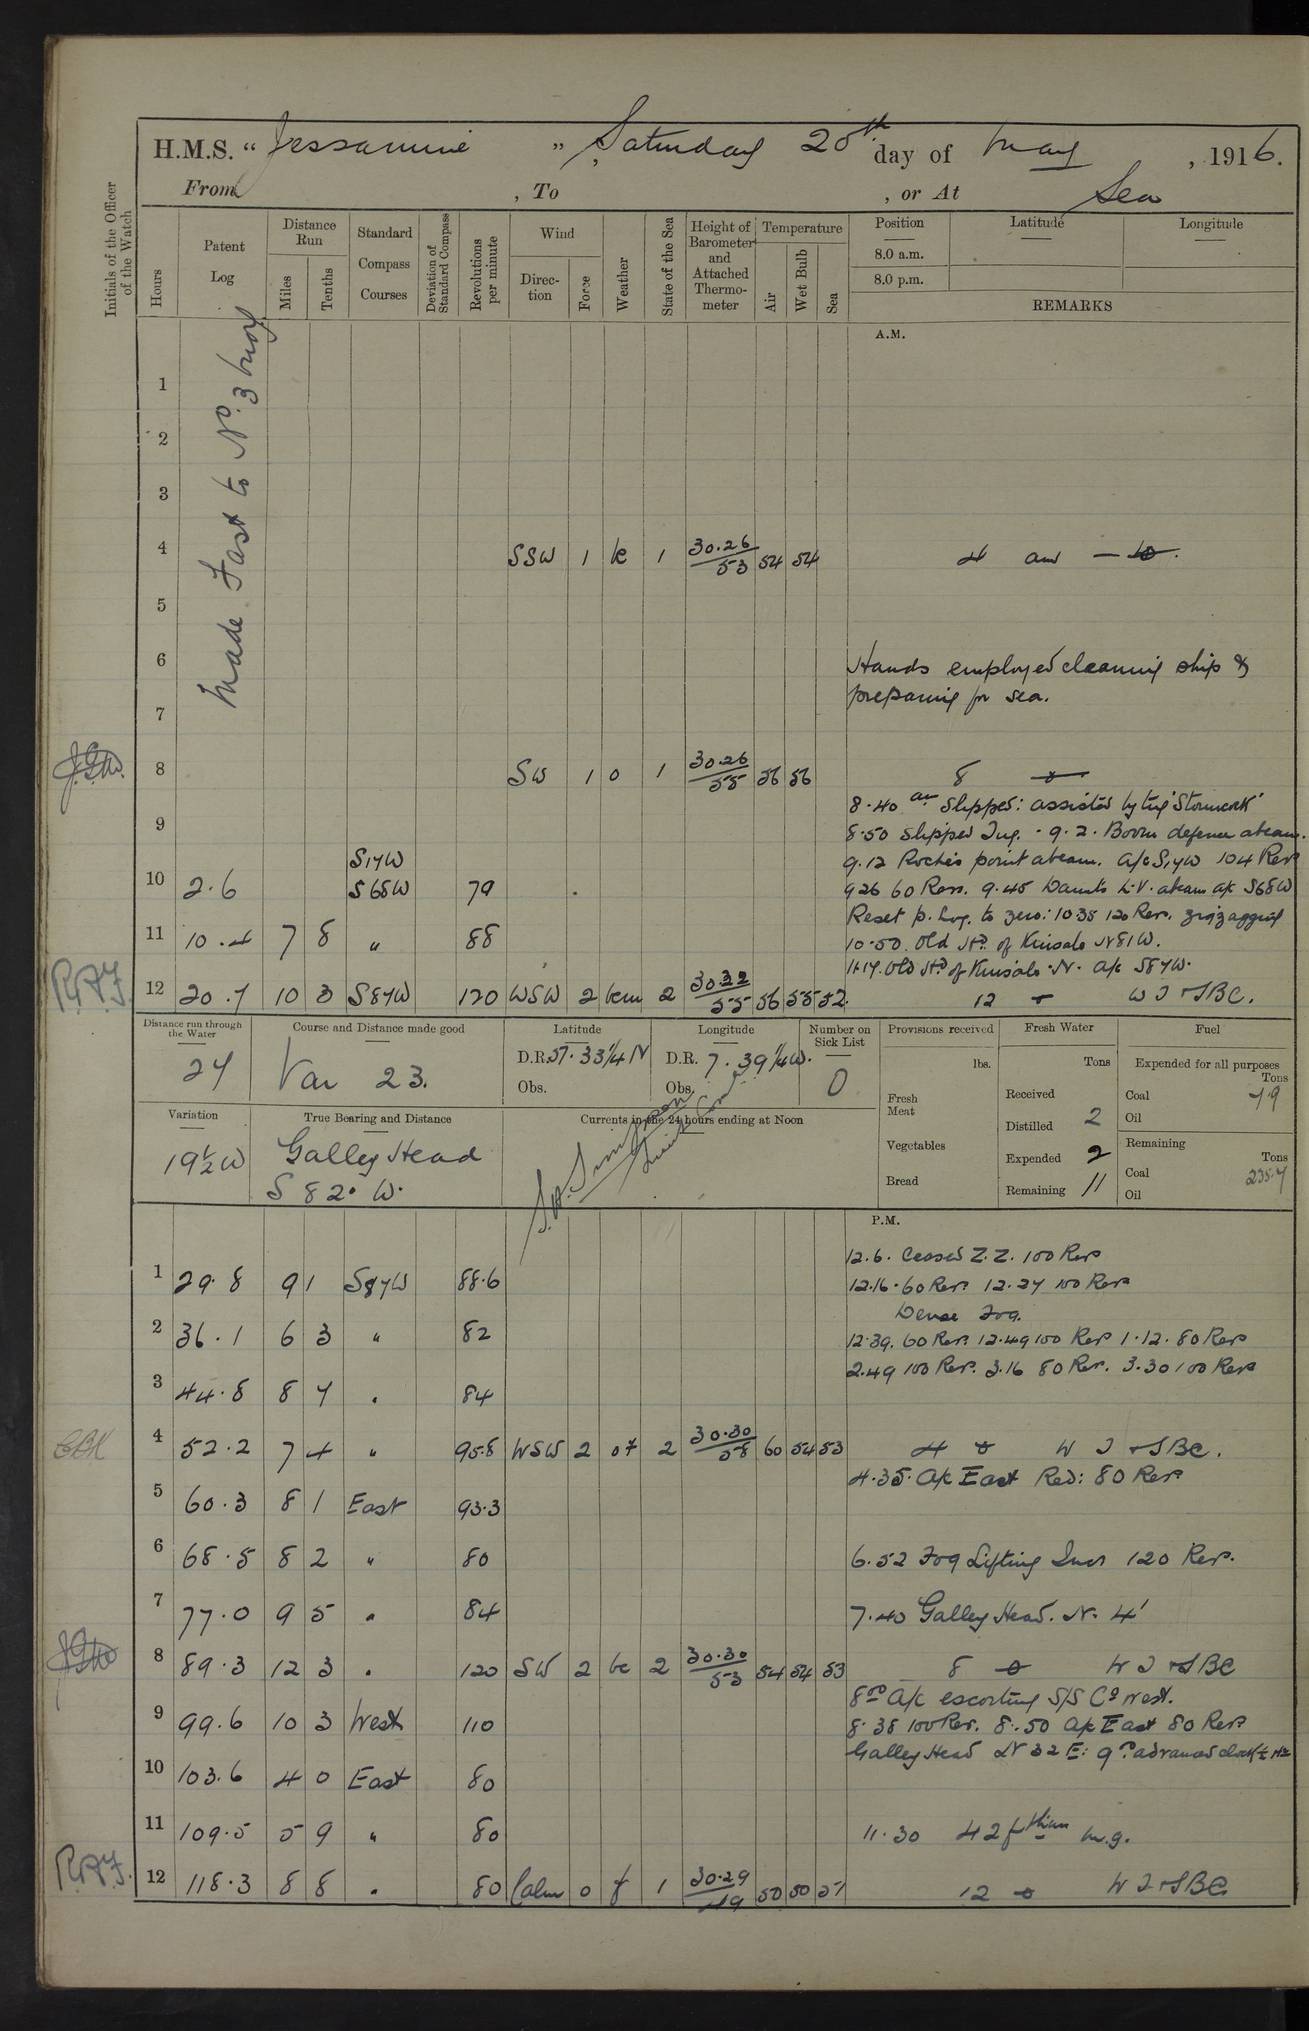 H.M.S. "Jessamine", Saturday 20th day of May, 1916.
From , To , or At Sea
Initials of the Officer of the Watch
Hours
Patent Log
Distance Run
Miles
Tenths
Standard Compass Courses
Deviation of Standard Compass
Revolutions per minute
Wind
Direction
Force
Weather
State of the Sea
Height of Barometer and Attached Thermometer
Temperature
Air
Wet Bulb
Sea
Position
Latitude
Longitude
8.0 a.m.
8.0 p.m.
REMARKS
A.M.
Made Fast to No. 3 buoy
1
2
3
4 SSW 1 bc 1 30.26/53 54 54 4 am
5
6 Hands employed cleaning ship &
preparing for sea.
7
8 SW 1 0 1 30.26/55 56 56 8
8.40 am Slipped: assisted by tug "Stormcock"
9 8.50 Slipped Tug. - 9.2. Boom defence abeam.
S17W 9.12 Roche's point abeam. a/c S17W 104 Revs
10 2.6 S68W 79 9 26 60 Revs. 9.45 Daunts L.V. abeam a/c S68W
Reset p. Log. to zero: 10 35 120 Revs. zigzagging
11 10.4 7 8 " 88 10.50. Old Hd. of Kinsale N81W.
11.17. Old Hd of Kinsale N. a/c S87W.
12 20.7 10 3 S87W 120 WSW 2 bcm 2 30.32/55 56 55 52 12 W I & SBC.
Distance run through the Water
27
Course and Distance made good
Var 23.
Latitude
D.R. 51.33 1/4 N
Obs.
Longitude
D.R. 7.39 1/4 W.
Obs.
Number on Sick List
0
Provisions received
lbs.
Fresh Meat
Vegetables
Bread
Fresh Water
Tons
Received
Distilled 2
Expended 2
Remaining 11
Fuel
Expended for all purposes
Tons
Coal 19
Oil
Remaining
Tons
Coal 235.7
Oil
Variation
19 1/2 W
True Bearing and Distance
Galley Head
S 82° W.
Currents in the 24 hours ending at Noon
P.M.
12.6. Ceased Z.Z. 100 Revs
1 29.8 9 1 S87W 88.6 12.16. 60 Revs 12.27 100 Revs
Dense Fog.
2 36.1 6 3 " 82 12.39. 60 Revs. 12.49 100 Revs 1.12. 80 Revs
2.49 100 Revs. 3.16 80 Revs. 3.30 100 Revs
3 44.8 8 7 " 84
4 52.2 7 4 " 95.8 WSW 2 of 2 30.30/58 60 54 53 4 W I & SBC.
4.35. A/c East Red: 80 Revs
5 60.3 8 1 East 93.3
6 68.5 8 2 " 80 6.52 Fog Lifting Incr 120 Revs.
7 77.0 9 5 " 84 7.40 Galley Head. N. 4'
8 89.3 12 3 " 120 SW 2 bc 2 30.30/53 54 54 53 8 W I & SBC
A/c escorting S/S Co West.
9 99.6 10 3 West 110 8.38 100 Revs. 8.50 A/c East 80 Revs
Galley Head N 32 E: 9 pm advanced clock 1/2 Hr
10 103.6 4 0 East 80
11 109.5 5 9 " 80 11.30 42 fthms m.g.
12 118.3 8 8 " 80 Calm 0 f 1 30.29/49 50 50 51 12 W I & SBC